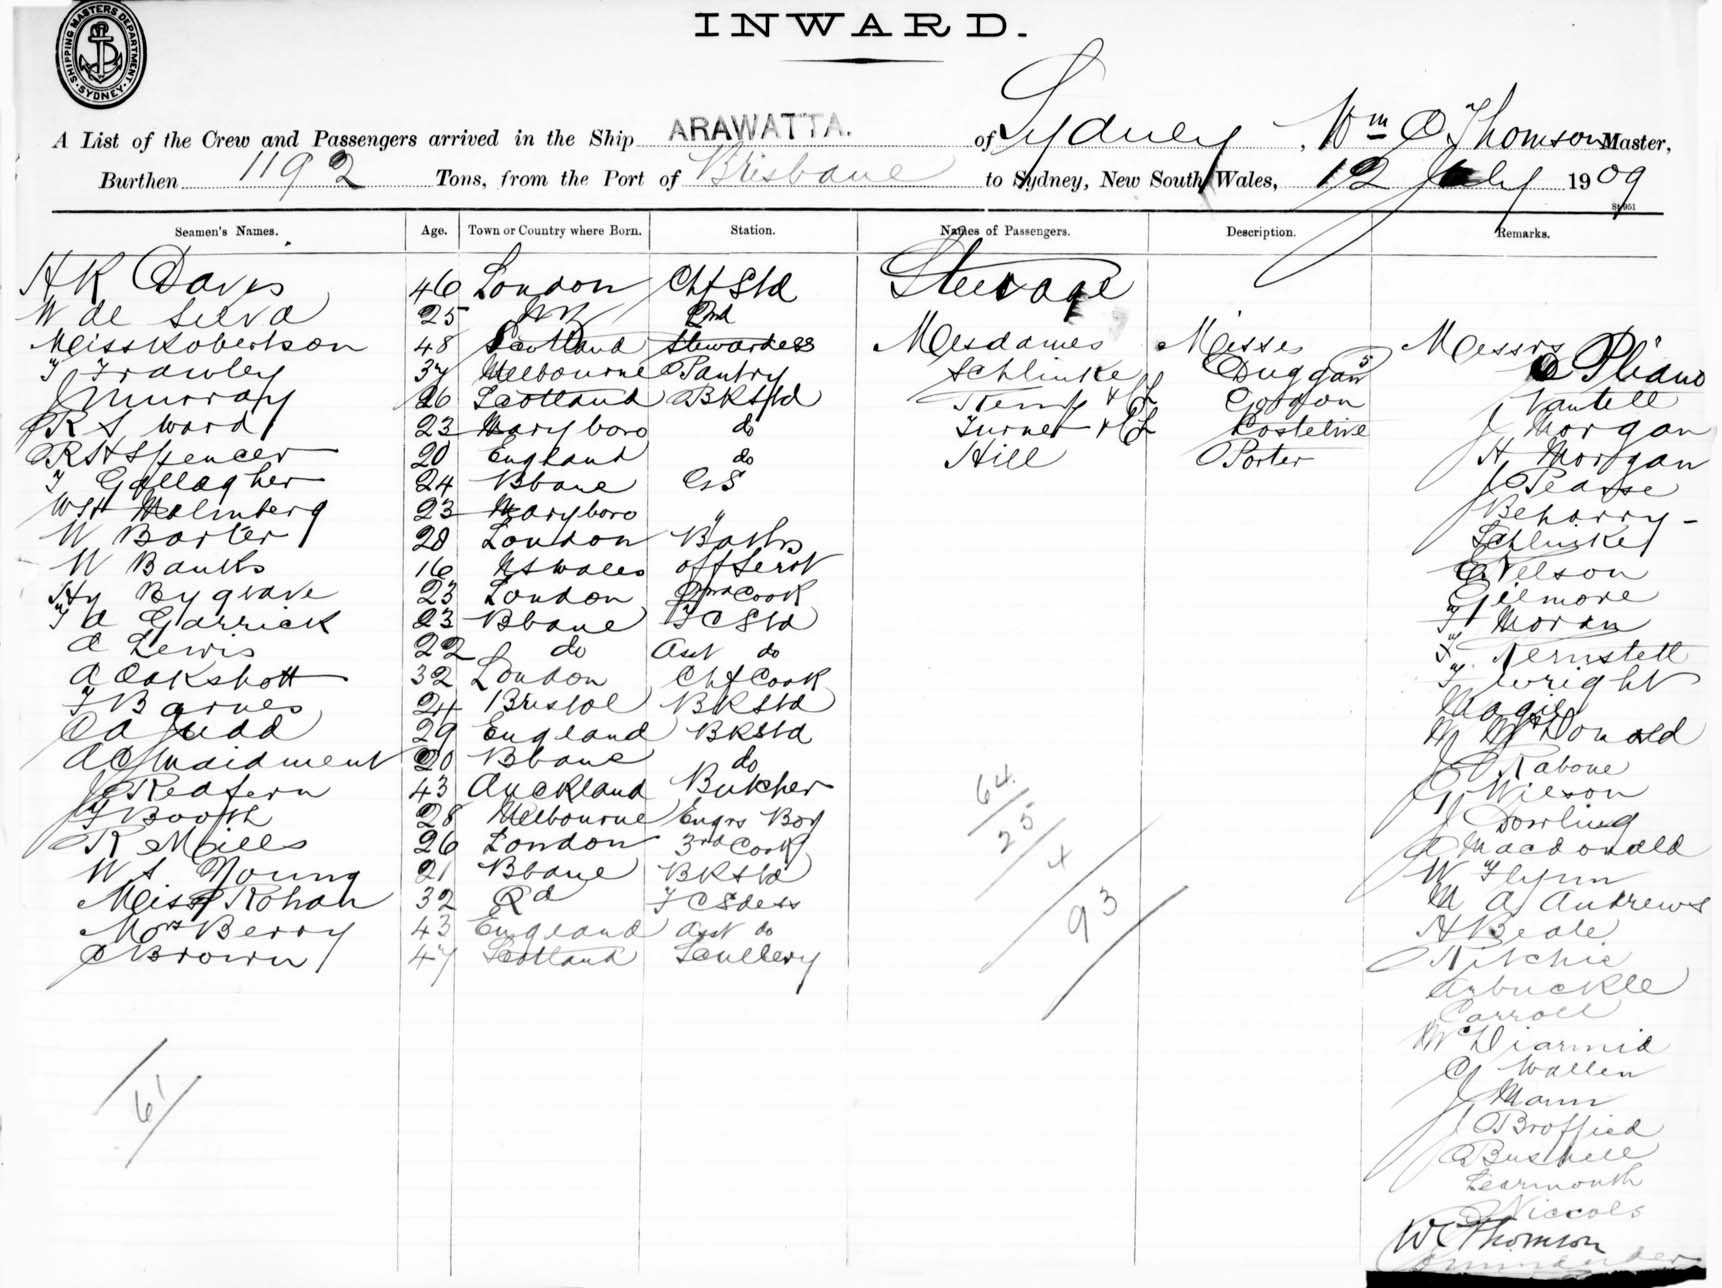 SHIPPING MASTERS DEPARTMENT. SYDNEY.
INWARD.
A List of the Crew and Passengers arrived in the Ship ARAWATTA. of Sydney, Wm C Thomson Master,
Burthen 1192 Tons, from the Port of Brisbane to Sydney, New South Wales, 12 July 1909
Seamen's Names. Age. Town or Country where Born. Station. Names of Passengers. Description. Remarks.
H R Davis 46 London Chf Std
Steerage
W de Silva 25 2nd
Miss Robertson 48 Scotland Stewardess
Mesdames Misses Messrs
T Frawley 37 Melbourne Pantry
Schlinke Duggan 5
J Murray 26 Scotland BR Std
Kemp & Gordon
R S Ward 23 Maryboro do
Turner & Costelive J Morgan
R H Spencer 20 England do
Hill Porter H Morgan
T Gallagher 24 Bbane
J Pearse
W H Malmberg 23 Maryboro "
Beharry -
W Barter 20 London Baths
Schlinke
W Banks 16 N S Wales Off Servt
Nelson
Hy Bygrave 23 London 2nd Cook
Gilmore
T A Garrick 23 Bbane F C Std
T Moran
A Lewis 22 do Asst do
A Oakshott 32 London Chf Cook
T Wright
T Barnes 24 Bristol BR Std
C A Judd 29 England BR Std
M McDonald
A C Maidment 20 Bbane do
J Rabone
J Redfern 43 Auckland Butcher
G Wilson
T Booth 28 Melbourne Engrs Boy
J Dowling
R Mills 26 London 3rd Cook
A Macdonald
W S Young 21 Bbane BR Std
W Flynn
Miss Rohan 32 Qd F C Sdess
M A Andrews
Mrs Berry 43 England Asst do
H Beale
C Brown 47 Scotland Scullery
Ritchie
Arbuckle
Carroll
McDiarmid
C Wallen
J Mann
J Broffied
A Bushell
Learmonth
Niccols
64
25
4
93
61
W C Thomson
Commander